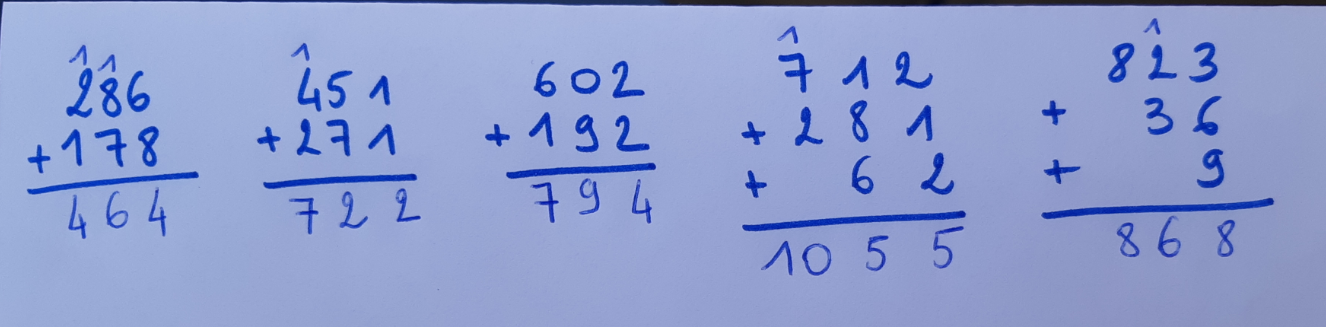 1 1
286
+178
464
1
451
+271
722
602
+192
794
1
712
+281
+ 62
1055
1
823
+ 36
+ 9
868